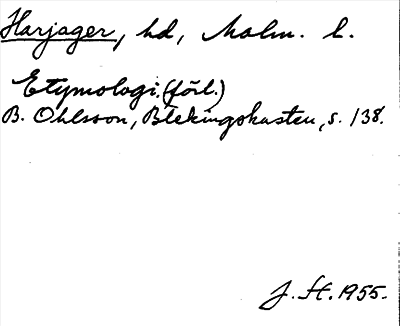 Harjager, hd, Malm. l.
Etymologi. (förl.)
B. Ohlsson, Blekingskusten, s. 138.
J. H. 1955.